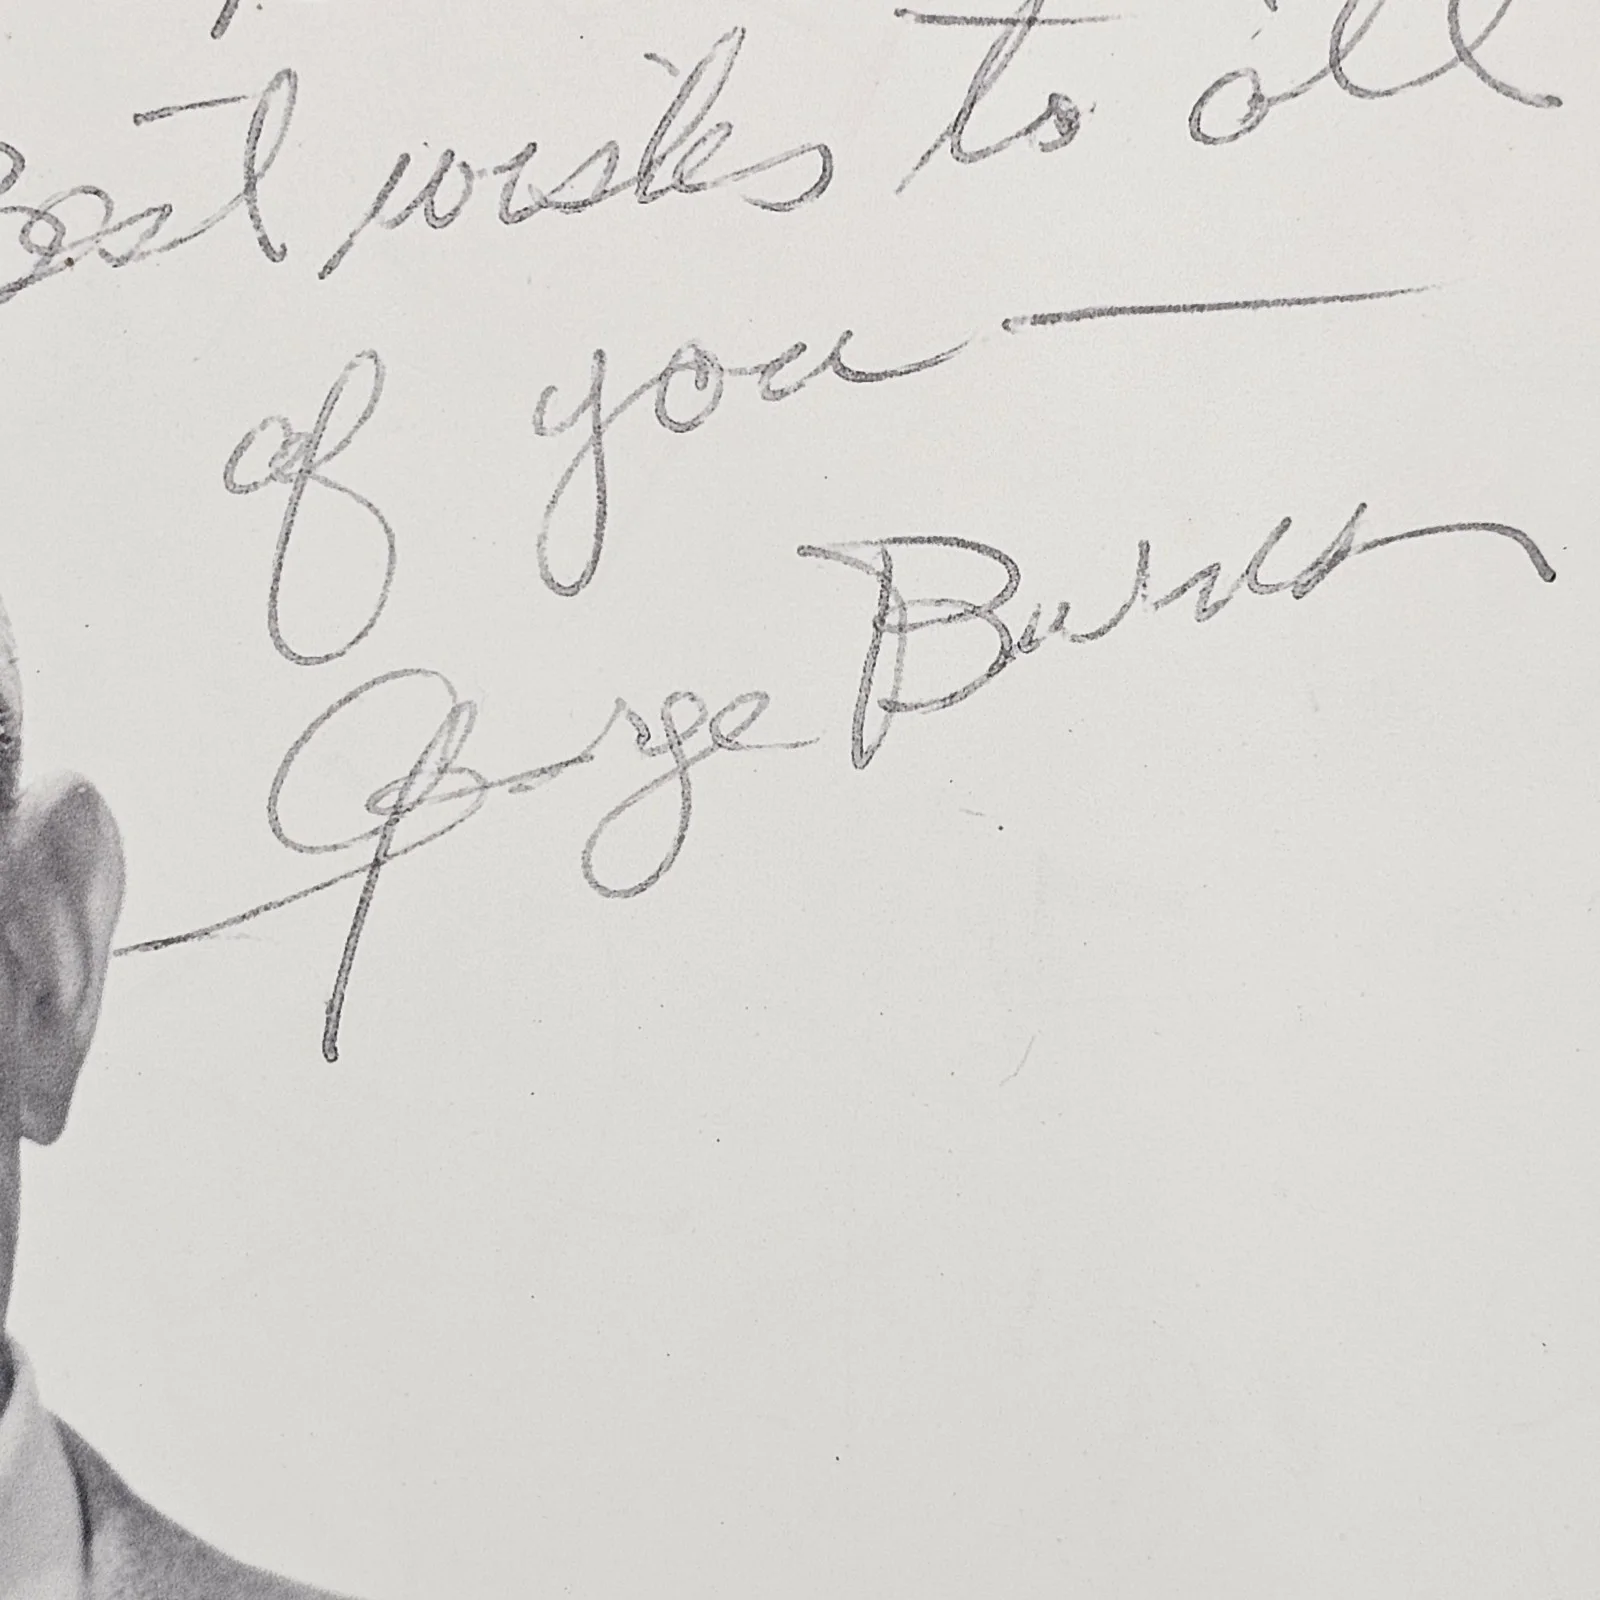 Best wishes to all
of you —
George Burns